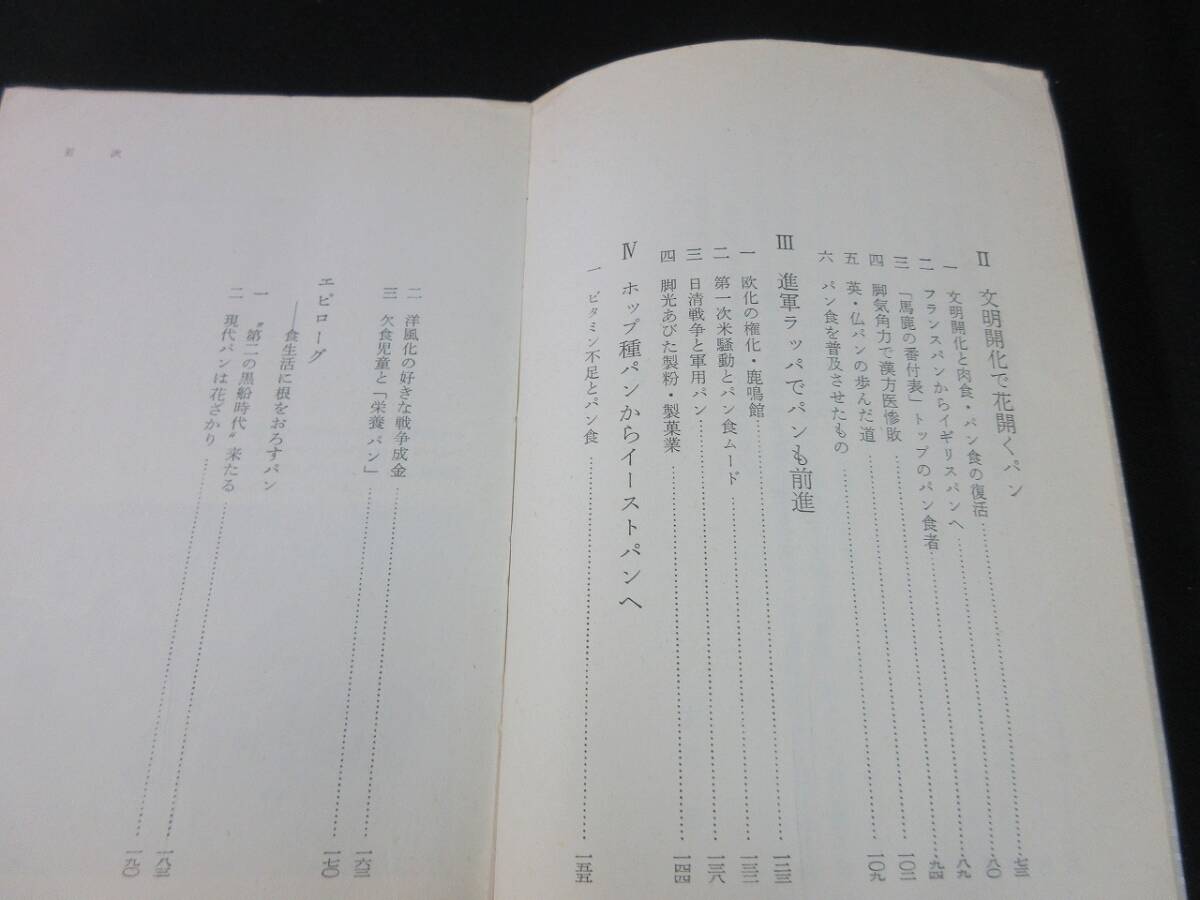 II 文明開化で花開くパン
一 文明開化と肉食・パン食の復活……七三
二 フランスパンからイギリスパンへ……八〇
三 「馬鹿の番付表」トップのパン食者……八九
四 脚気角力で漢方医惨敗……九四
五 英・仏パンの歩んだ道……一〇二
六 パン食を普及させたもの……一〇九
III 進軍ラッパでパンも前進
一 欧化の権化・鹿鳴館……一二三
二 第一次米騒動とパン食ムード……一三二
三 日清戦争と軍用パン……一三八
四 脚光あびた製粉・製菓業……一四四
IV ホップ種パンからイーストパンへ
一 ビタミン不足とパン食……一五五
目次
二 洋風化の好きな戦争成金……一六三
三 欠食児童と「栄養パン」……一七〇
エピローグ
──食生活に根をおろすパン
一 〝第二の黒船時代〟来たる……一八三
二 現代パンは花ざかり……一九〇